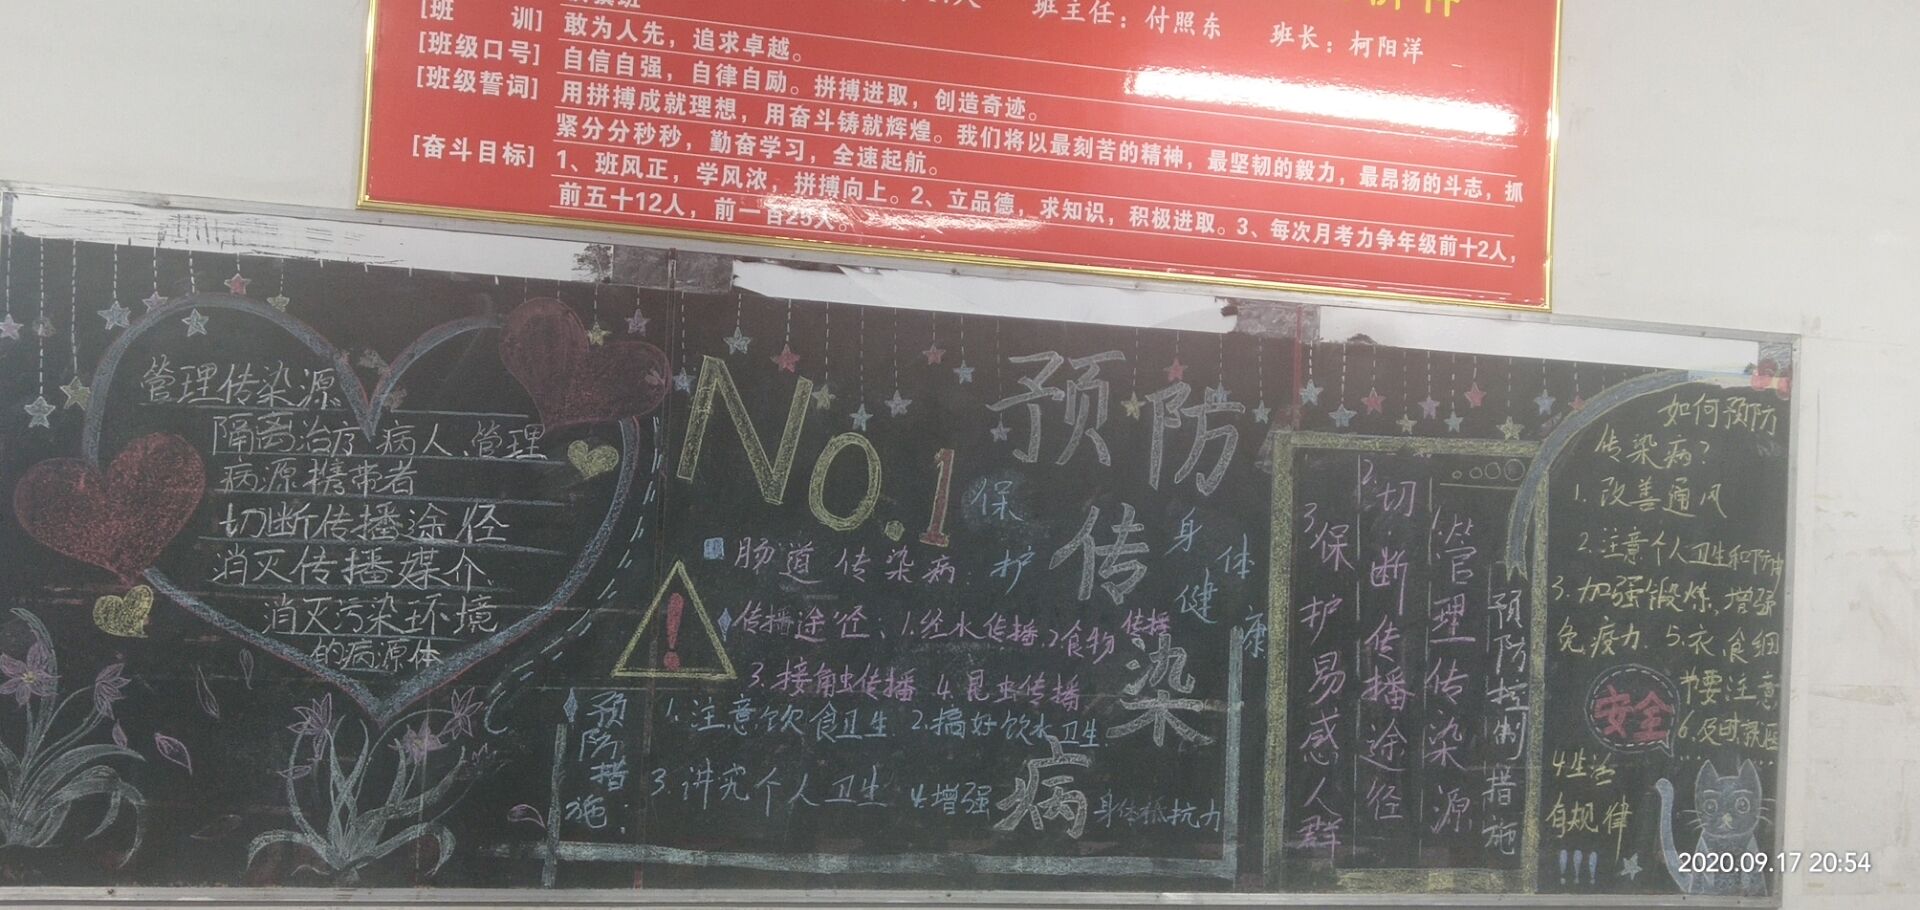 班主任：付照东 班长：柯阳洋
[班 训] 敢为人先，追求卓越。
[班级口号] 自信自强，自律自励。拼搏进取，创造奇迹。
[班级誓词] 用拼搏成就理想，用奋斗铸就辉煌。我们将以最刻苦的精神，最坚韧的毅力，最昂扬的斗志，抓
紧分分秒秒，勤奋学习，全速起航。
[奋斗目标] 1、班风正，学风浓，拼搏向上。2、立品德，求知识，积极进取。3、每次月考力争年级前十2人，
前五十12人，前一百25人。
管理传染源
隔离治疗病人、管理
病源携带者
切断传播途径
消灭传播媒介、
消灭污染环境
的病源体
No.1
预防
传
染
病
保
护
身
体
健
康
肠道传染病
传播途径：1.经水传播、2食物传播
3.接触虫传播 4.昆虫传播
预防措施：
1.注意饮食卫生 2.搞好饮水卫生.
3.讲究个人卫生 4.增强身体抵抗力
预防控制措施
1.管理传染源
2.切断传播途径
3.保护易感人群
如何预防
传染病？
1.改善通风
2.注意个人卫生和防护
3.加强锻炼，增强
免疫力 5.衣食细
节要注意
安全
6.及时就医
……
4生活
有规律
!!!
2020.09.17 20:54